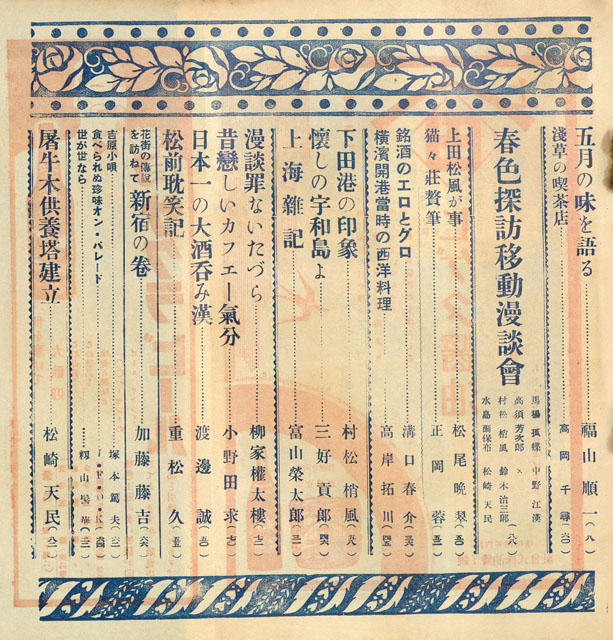 五月の味を語る 福山順一(八)
淺草の喫茶店 高岡千尋(六〇)
春色探訪移動漫談會 馬場孤蝶 中野江漢 高須芳次郎 村松梢風 鈴木治三郎 水島爾保布 松崎天民(一八)
上田松風が事 松尾晩琴
猫々莊贅筆 正岡蓉
銘酒のエロとグロ 溝口春介
橫濱開港當時の西洋料理 高岸拓川
下田港の印象 村松梢風
懷しの宇和島よ 三好貢郎
上海雜記 富山榮太郎
漫談罪ないたづら 柳家權太樓
昔戀しいカフエー氣分 小野田求
日本一の大酒呑み漢 渡邊誠
松前耽笑記 重松久
花街の傳說を訪ねて 新宿の卷 加藤藤吉
吉原小唄 塚本篤夫
食べられぬ珍味オン・パレード I・F・O・K
世が世なら
屠牛木供養塔建立 松崎天民